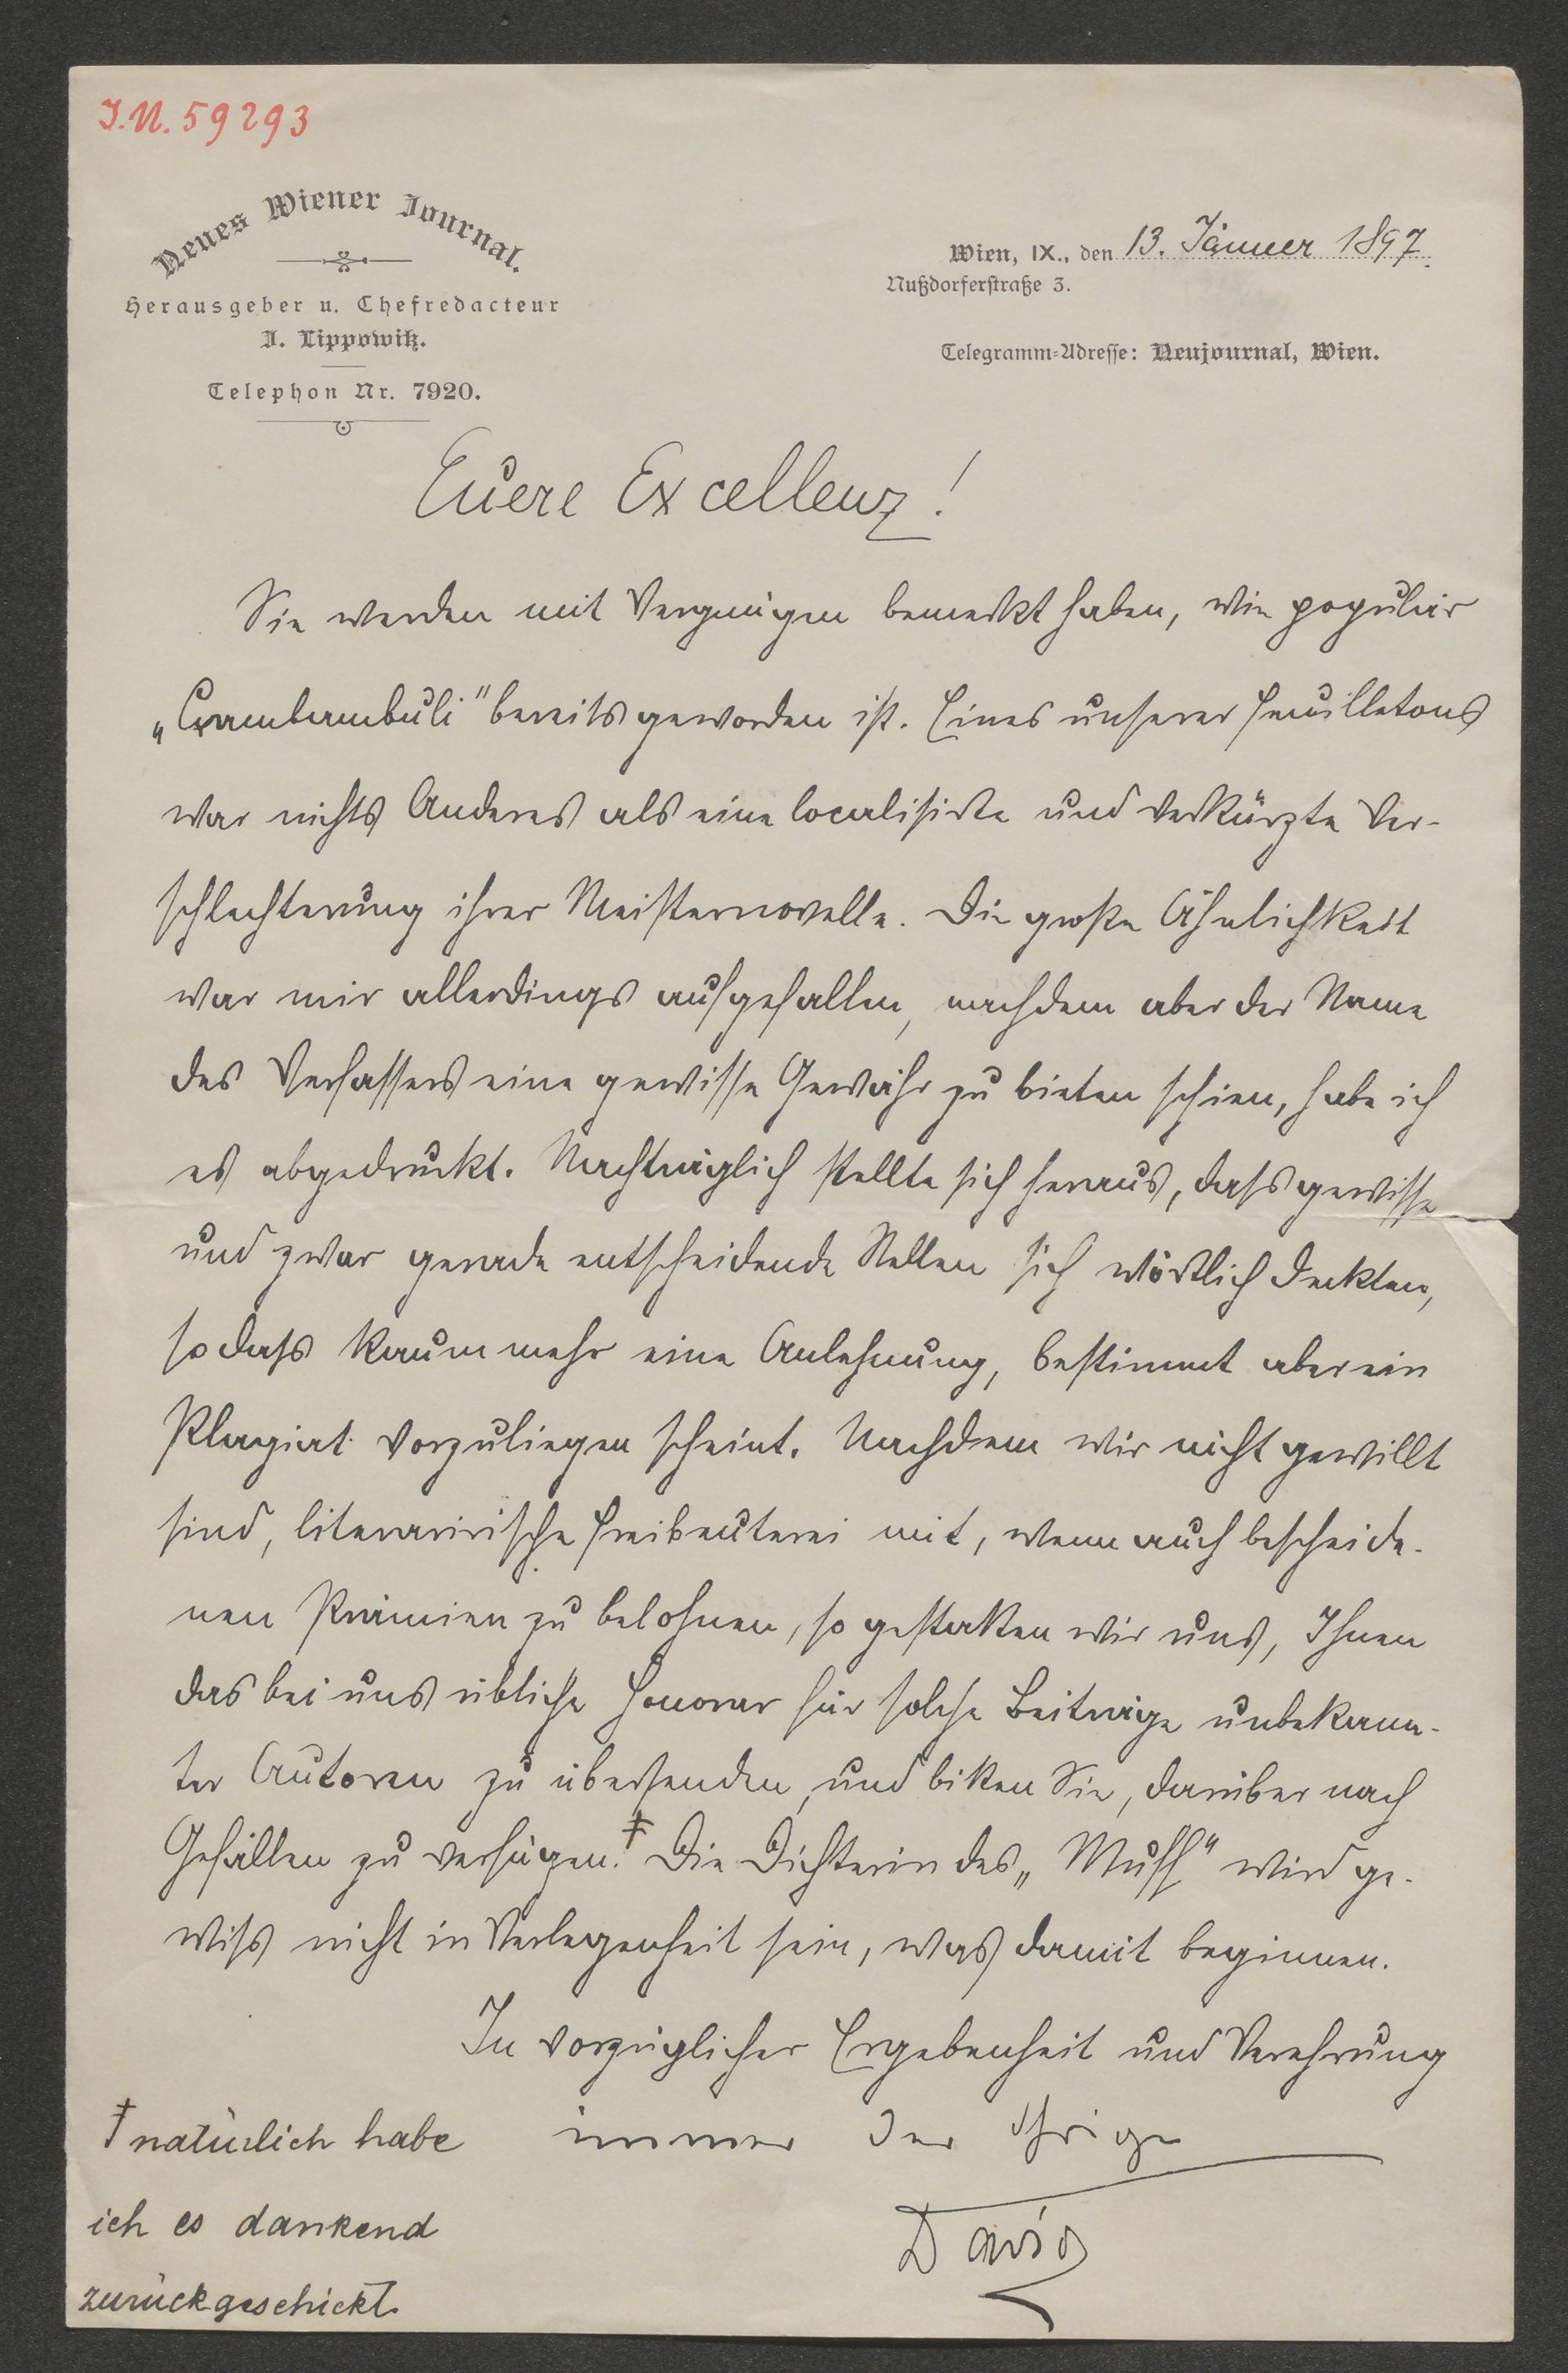 J.N. 59293
Neues Wiener Journal.
Herausgeber u. Chefredacteur
J. Lippowitz.
Telephon Nr. 7920.
Wien, IX., den 13. Jänner 1897.
Nußdorferstraße 3.
Telegramm-Adresse: Neujournal, Wien.
Euere Excellenz!
Sie werden mit Vergnügen bemerkt haben, wie populär
„Crambambuli" bereits geworden ist. Eines unserer Feuilletons
war nichts Anderes als eine localisirte und verkürzte Ver-
schlechterung ihrer Meisternovelle. Die große Ähnlichkeit
war mir allerdings aufgefallen, nachdem aber der Name
des Verfassers eine gewisse Gewähr zu bieten schien, habe ich
es abgedruckt. Nachträglich stellte sich heraus, dass gewisse
und zwar gerade entscheidende Stellen sich wörtlich deckten,
so dass kaum mehr eine Anlehnung, bestimmt aber ein
Plagiat vorzuliegen scheint. Nachdem wir nicht gewillt
sind, literarirische Freibeuterei mit, wenn auch bescheide-
nen Prämien zu belohnen, so gestatten wir uns, Ihnen
das bei uns übliche Honorar für solche Beiträge unbekann-
ter Autoren zu übersenden, und bitten Sie, darüber nach
Gefallen zu verfügen.‡ Die Dichterin des „Muff" wird ge-
wiss nicht in Verlegenheit sein, was damit beginnen.
In vorzüglicher Ergebenheit und Verehrung
immer der Ihrige
David
‡ natürlich habe
ich es dankend
zurückgeschickt.